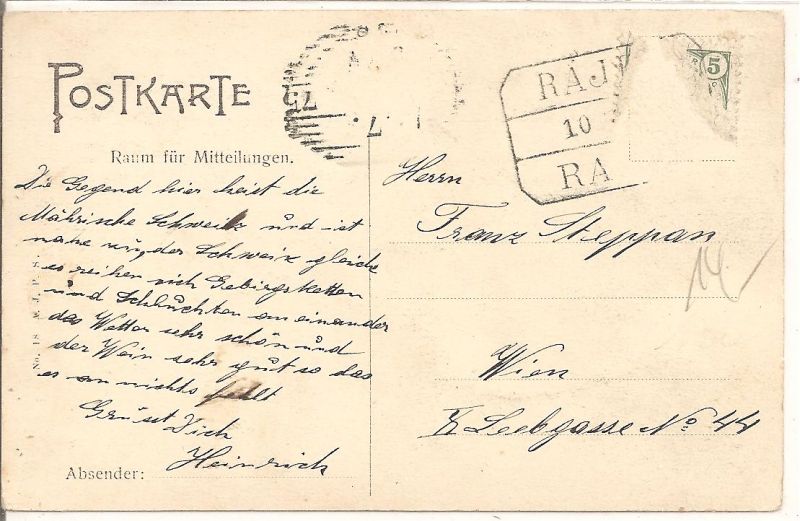 POSTKARTE
Raum für Mitteilungen.
Die Gegend hier heist die
Mährische Schweiz und ist
nahe der Schweiz gleich
es reihen sich Gebirgsketten
und Schluchten an einander
das Wetter sehr schön und
der Wein sehr gut so das
es an nichts fehlt
Grüsst Dich
Heinrich
Absender:
No. 18
RÁJ
10
RA
5
Herrn
Franz Steppan
14
Wien
X Leebgasse No 44